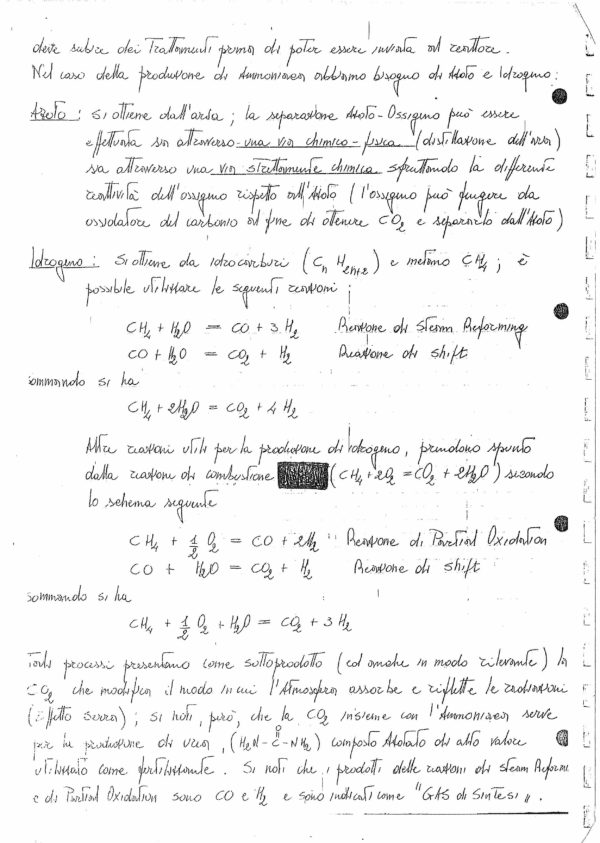 deve subire dei Trattamenti prima di poter essere inviata al reattore.
Nel caso della produzione di Ammoniaca abbiamo bisogno di Azoto e Idrogeno:
Azoto: Si ottiene dall'aria; la separazione Azoto-Ossigeno può essere
effettuata sia attraverso una via chimico-fisica (distillazione dell'aria)
sia attraverso una via strettamente chimica sfruttando la differente
reattività dell'ossigeno rispetto all'Azoto (l'ossigeno può fungere da
ossidatore del carbonio al fine di ottenere CO2 e separarlo dall'Azoto)
Idrogeno: Si ottiene da Idrocarburi (Cn H2n+2) e metano CH4; è
possibile utilizzare le seguenti reazioni:
CH4 + H2O = CO + 3 H2 Reazione di Steam Reforming
CO + H2O = CO2 + H2 Reazione di shift
sommando si ha
CH4 + 2H2O = CO2 + 4 H2
Altre reazioni utili per la produzione di idrogeno, prendono spunto
dalla reazione di combustione (CH4 + 2O2 = CO2 + 2H2O) secondo
lo schema seguente
CH4 + 1/2 O2 = CO + 2H2 Reazione di Partial Oxidation
CO + H2O = CO2 + H2 Reazione di shift
sommando si ha
CH4 + 1/2 O2 + H2O = CO2 + 3 H2
processi presentano come sottoprodotto (ed anche in modo rilevante) la
CO2 che modifica il modo in cui l'Atmosfera assorbe e riflette le radiazioni
(Effetto Serra); si noti, però, che la CO2 insieme con l'Ammoniaca serve
per la produzione di urea, (H2N-C-NH2) composto Azotato di alto valore
O
utilizzato come fertilizzante. Si noti che i prodotti delle reazioni di Steam Reformi
e di Partial Oxidation sono CO e H2 e sono indicati come "GAS di Sintesi".